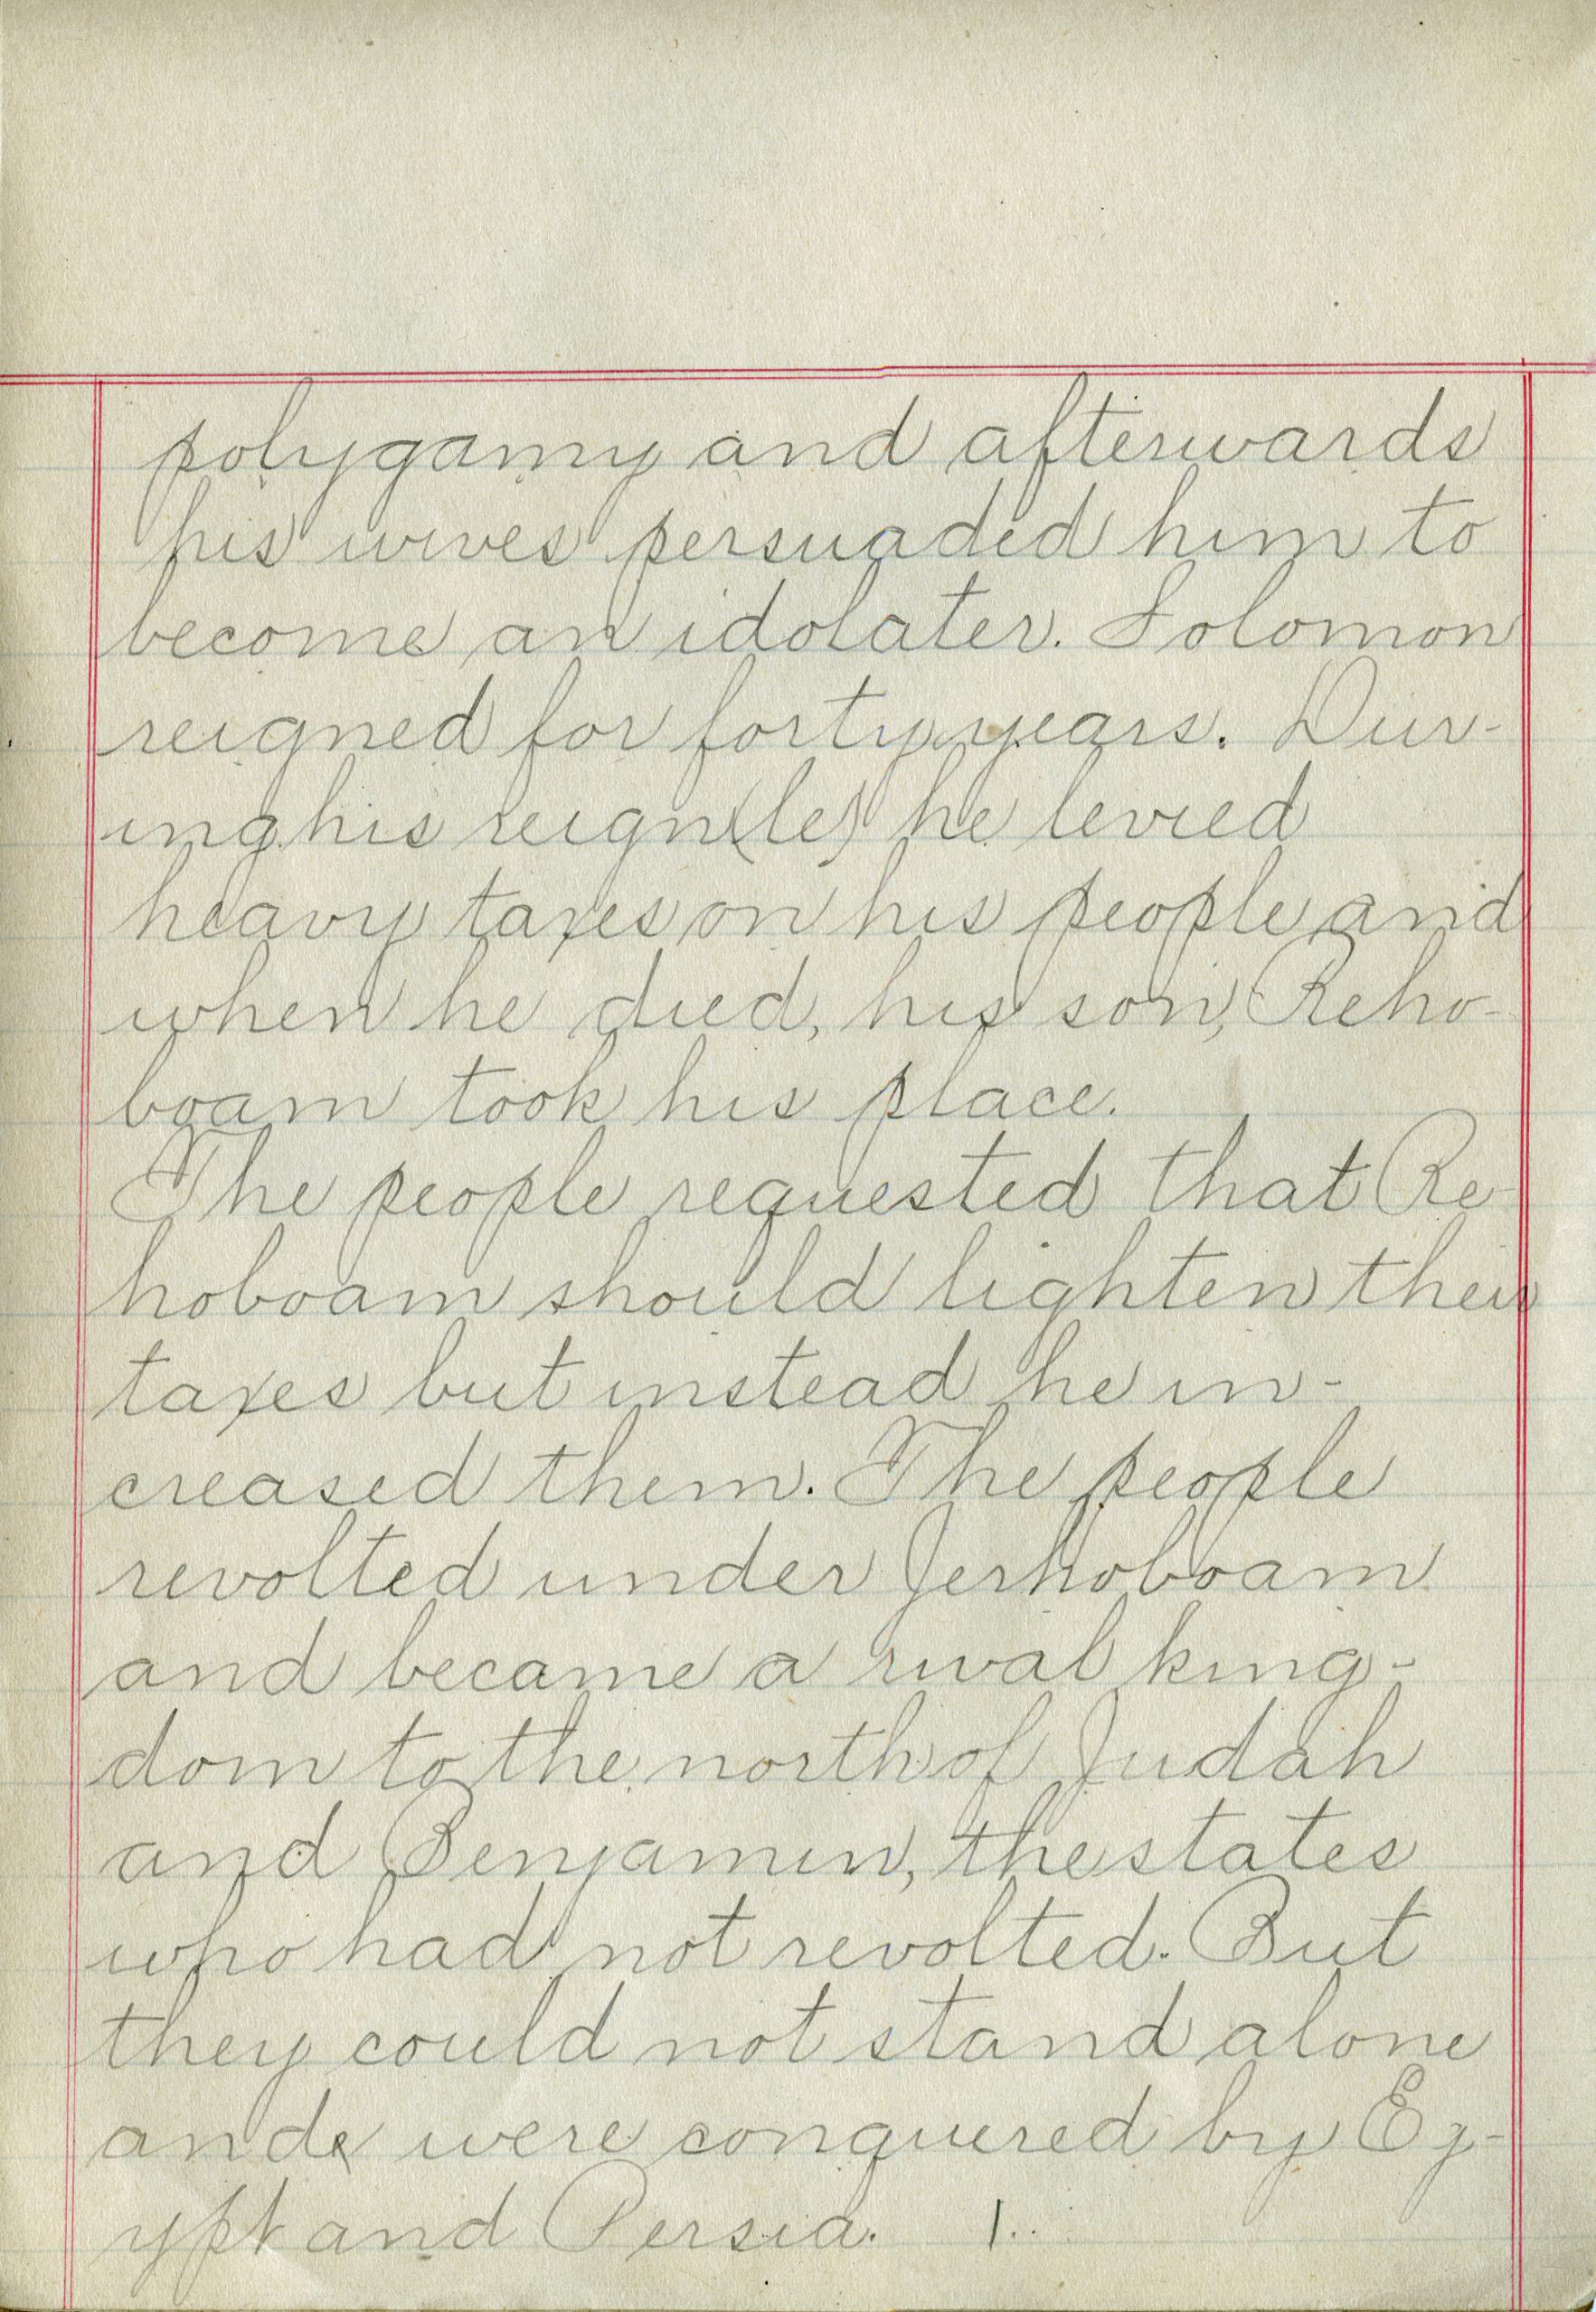 polygamy and afterwards
his wives persuaded him to
become an idolater. Solomon
reigned for forty years. Dur-
ing his reign (le) he levied
heavy taxes on his people and
when he died, his son, Reho-
boam took his place.
The people requested that Re-
hoboam should lighten their
taxes but instead he in-
creased them. The people
revolted under Jerhoboam
and became a rival king-
dom to the north of Judah
and Benjamin, the states
who had not revolted. But
they could not stand alone
and were conquered by Eg-
ypt and Persia. 1..